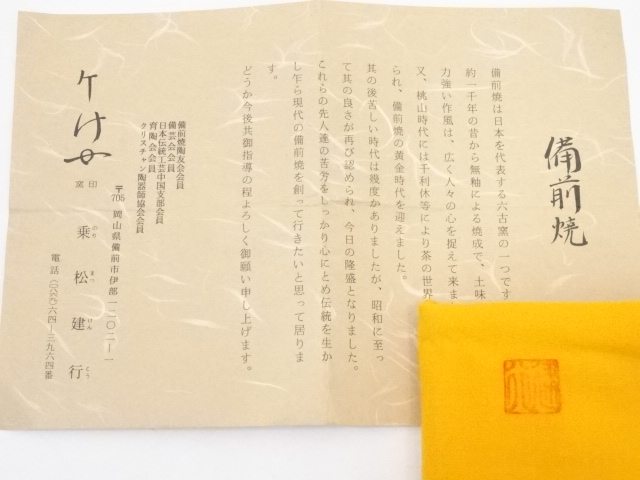 備前焼
備前焼は日本を代表する六古窯の一つです
約一千年の昔から無釉による焼成で、土味
力強い作風は、広く人々の心を捉えて来ま
又、桃山時代には千利休等により茶の世界
られ、備前焼の黄金時代を迎えました。
其の後苦しい時代は幾度かありましたが、昭和に至っ
て其の良さが再び認められ、今日の隆盛となりました。
これらの先人達の苦労をしっかり心にとめ伝統を生か
し乍ら現代の備前焼を創って行きたいと思って居りま
す。
どうか今後共御指導の程よろしく御願い申し上げます。
備前焼陶友会会員
備芸会会員
日本伝統工芸中国支部会員
育陶会会員
クリスチャン陶器師協会会員
〒705 岡山県備前市伊部一二〇二ー一
窯印
乗松建行
のりまつけんこう
電話(〇八六九)六四ー三九六四番